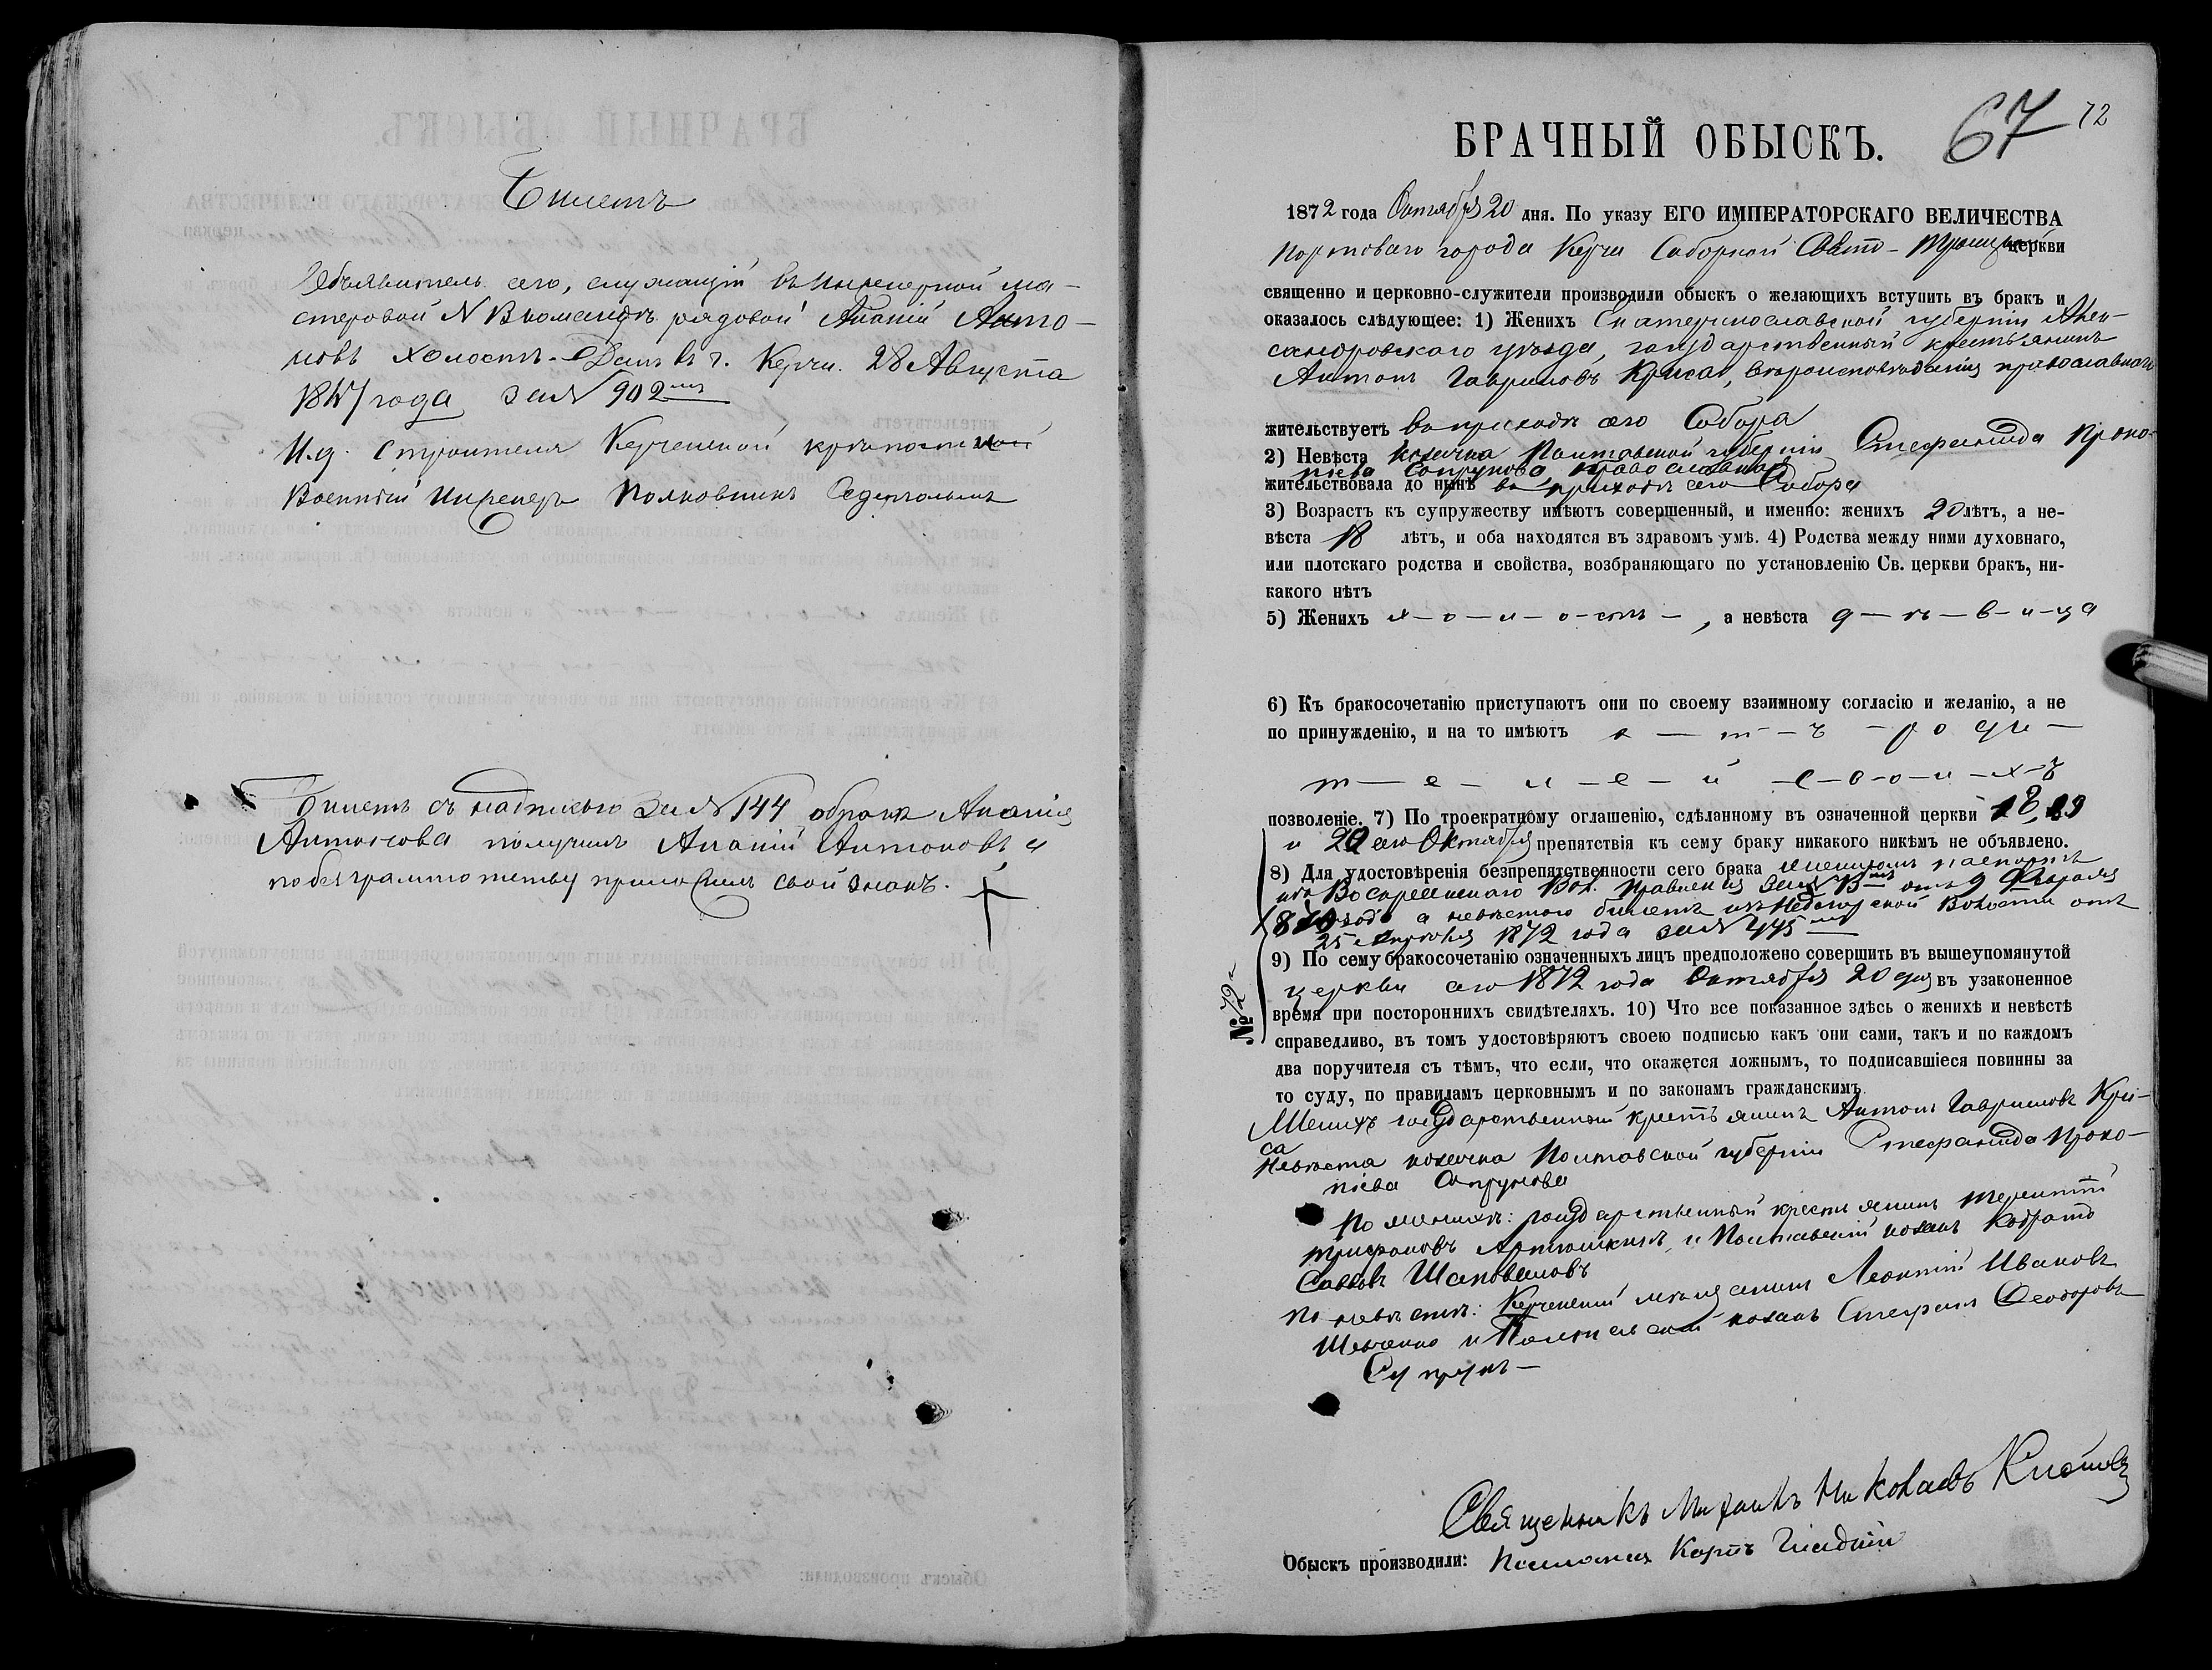 Билетъ
Объявитель сего, служащій въ Инженерной ма-
стеровой № В командѣ рядовой Ананій Анто-
новъ холостъ. Данъ въ г. Керчи. 28 Августа
года за № 902
И. д. Строителя Керченской крѣпостной
Военный Инженеръ Полковникъ
Билетъ съ надписью за № 144 о бракѣ Ананія
Антонова получилъ Ананій Антоновъ, а
по безграмотству приложилъ свой знакъ.
67 72
БРАЧНЫЙ ОБЫСКЪ.
1872 года Октября 20 дня. По указу ЕГО ИМПЕРАТОРСКАГО ВЕЛИЧЕСТВА
портоваго города Керчи Соборной Свято-Троицкой церкви
священно и церковно-служители производили обыскъ о желающихъ вступить въ бракъ и
оказалось слѣдующее: 1) Женихъ Екатеринославской губерніи Алек-
сандровскаго уѣзда, государственный крестьянинъ
Антонъ Гавриловъ Крыса, вѣроисповѣданія православнаго
жительствуетъ въ приходѣ сего Собора
2) Невѣста козачка Полтавской губерніи Стефанида Проко-
піева Супрунова православная
жительствовала до нынѣ въ приходѣ сего Собора
3) Возрастъ къ супружеству имѣютъ совершенный, и именно: женихъ 20 лѣтъ, а не-
вѣста 18 лѣтъ, и оба находятся въ здравомъ умѣ. 4) Родства между ними духовнаго,
или плотскаго родства и свойства, возбраняющаго по установленію Св. церкви бракъ, ни-
какого нѣтъ
5) Женихъ х-о-л-о-стъ-, а невѣста д-ѣ-в-и-ца
6) Къ бракосочетанію приступаютъ они по своему взаимному согласію и желанію, а не
по принужденію, и на то имѣютъ о-т-ъ-роди-
т-е-л-е-й-с-в-о-и-х-ъ
позволеніе. 7) По троекратному оглашенію, сдѣланному въ означенной церкви 18, 19
и 20 сего Октября препятствія къ сему браку никакого никѣмъ не объявлено.
8) Для удостовѣренія безпрепятственности сего брака женихомъ паспортъ
изъ Воскресенскаго Вол. Правленія за № отъ 9 Февраля
года а невѣстою билетъ изъ Волости отъ
25 Апрѣля 1872 года за № 445
9) По сему бракосочетанію означенныхъ лицъ предположено совершить въ вышеупомянутой
церкви сего 1872 года Октября 20 дня въ узаконенное
время при постороннихъ свидѣтеляхъ. 10) Что все показанное здѣсь о женихѣ и невѣстѣ
справедливо, въ томъ удостовѣряютъ своею подписью какъ они сами, такъ и по каждомъ
два поручителя съ тѣмъ, что если, что окажется ложнымъ, то подписавшіеся повинны за
то суду, по правиламъ церковнымъ и по законамъ гражданскимъ
№ 72
Женихъ государственный крестьянинъ Антонъ Гавриловъ Кры-
са
Невѣста козачка Полтавской губерніи Стефанида Проко-
піева Супрунова
По женихѣ: государственный крестьянинъ Терентій
Трифоновъ Артюшкинъ, и Полтавскій козакъ Кодратъ
Савовъ Шаповаловъ
По невѣстѣ: Керченскій мѣщанинъ Леонтій Ивановъ
Шевченко и Полтавскій козакъ Стефанъ Феодоровъ
Супрунъ-
Священникъ Михаилъ Николаевъ
Обыскъ производили: Псаломщ. Карпъ Гладкій